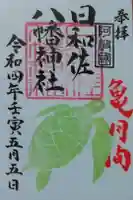 奉拝
阿波國
日和佐
八幡神社
令和四年壬寅五月五日